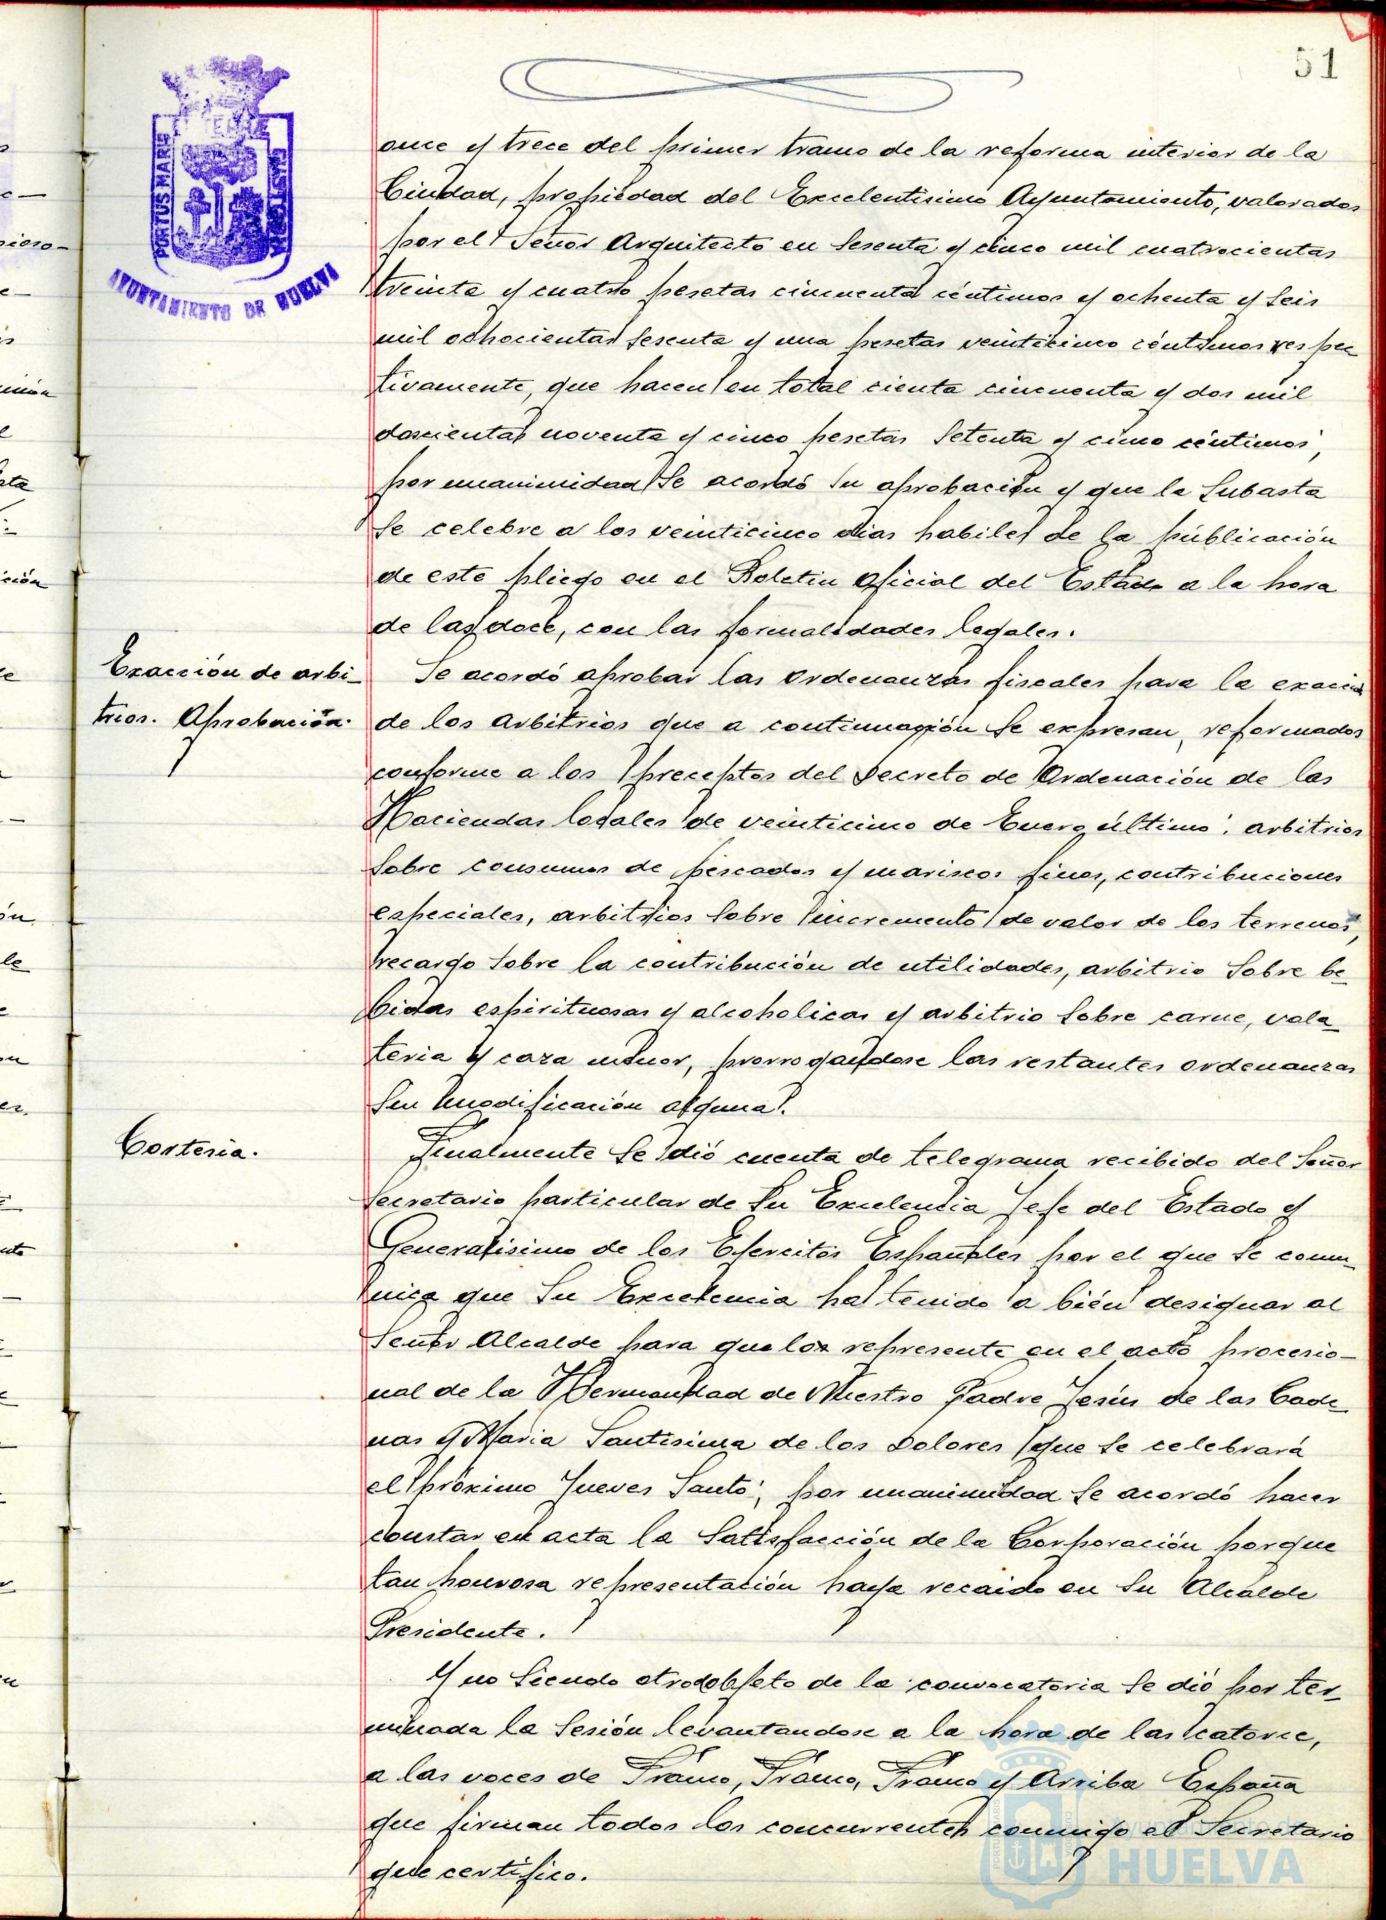 51
PORTUS MARIS
ET TERRÆ
CUSTODIA
AYUNTAMIENTO DE HUELVA
once y trece del primer tramo de la reforma interior de la
Ciudad, propiedad del Excelentisimo Ayuntamiento, valorados
por el Señor Arquitecto en sesenta y cinco mil cuatrocientas
treinta y cuatro pesetas cincuenta céntimos y ochenta y seis
mil ochocientas sesenta y una pesetas veinticinco céntimos respec
tivamente, que hacen en total cienta cincuenta y dos mil
doscientas noventa y cinco pesetas setenta y cinco céntimos,
por unanimidad se acordó su aprobación y que la subasta
se celebre a los veinticinco dias habiles de la publicación
de este pliego en el Boletin oficial del Estado a la hora
de las doce, con las formalidades legales.
Exacción de arbi-
trios. Aprobación.
Se acordó aprobar las ordenanzas fiscales para la exacción
de los arbitrios que a continuación se expresan, reformados
conforme a los preceptos del Decreto de Ordenación de las
Haciendas locales de veinticinco de Enero último: arbitrios
sobre consumos de pescados y mariscos finos, contribuciones
especiales, arbitrios sobre incremento de valor de los terrenos,
recargo sobre la contribución de utilidades, arbitrio sobre be-
bidas espirituosas y alcoholicas y arbitrio sobre carne, vola-
teria y caza menor, prorrogandose las restantes ordenanzas
sin modificación alguna.
Cortesia.
Finalmente se dió cuenta de telegrama recibido del Señor
Secretario particular de Su Excelencia Jefe del Estado y
Generalisimo de los Ejercitos Españoles por el que se comu-
nica que Su Excelencia ha tenido a bién designar al
Señor Alcalde para que los represente en el acto procesio-
nal de la Hermandad de Nuestro Padre Jesús de las Cade-
nas y Maria Santisima de los Dolores que se celebrará
el próximo Jueves Santo; por unanimidad se acordó hacer
constar en acta la satisfacción de la Corporación porque
tan honrosa representación haya recaido en su Alcalde
Presidente.
Y no siendo otro objeto de la convocatoria se dió por ter-
minada la sesión levantandose a la hora de las catorce,
a las voces de Franco, Franco, Franco y Arriba España
que firman todos los concurrentes conmigo el Secretario
que certifico.
Ayuntamiento de
HUELVA